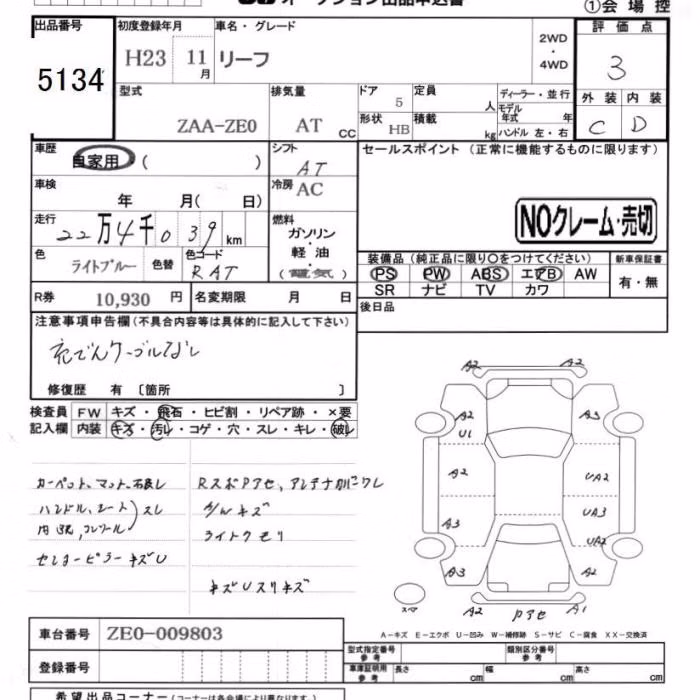 オークション出品申込書
①会場控
出品番号 初度登録年月 車名・グレード 評価点
5134 H23 11月 リーフ 2WD・4WD 3
型式 排気量 ドア 定員 ディーラー・並行 外装 内装
ZAA-ZE0 AT CC 5 人 モデル年式 年 C D
形状 HB 積載 kg ハンドル 左・右
車歴 シフト セールスポイント（正常に機能するものに限ります）
自家用（ ） AT
車検 冷房
年 月（ 日） AC
走行 燃料 NOクレーム・売切
22万4千039km ガソリン・軽油・（電気）
色 色替 色コード 装備品（純正品に限り○をつけてください） 新車保証書
ライトブルー RAT PS PW ABS エアB AW 有・無
SR ナビ TV カワ
R券 10,930円 名変期限 月 日 後日品
注意事項申告欄（不具合内容等は具体的に記入して下さい）
充でんケーブルなし
修復歴 有〔箇所 〕
検査員 FW キズ・飛石・ヒビ割・リペア跡・×要
記入欄 内装 キズ・汚レ・コゲ・穴・スレ・キレ・破レ
カーペット、マット、 Rスポアセ、アンテナカバーワレ
ハンドル、シート スレ A/Wキズ
内張, ライトクモリ
センターピラーキズU
キズUスリキズ
A2 A2
A2 A3
U1
A2 UA2
A3 UA3
UA2
A3 A2
スマ A2 Pアセ A1
A－キズ E－エクボ U－凹み W－補修跡 S－サビ C－腐食 XX－交換済
車台番号 ZE0-009803
登録番号
型式指定番号 参考 類別区分番号 参考
車庫証明用 参考 長さ cm 幅 cm 高さ cm
希望出品コーナー（コーナー名は各会場により異なります）